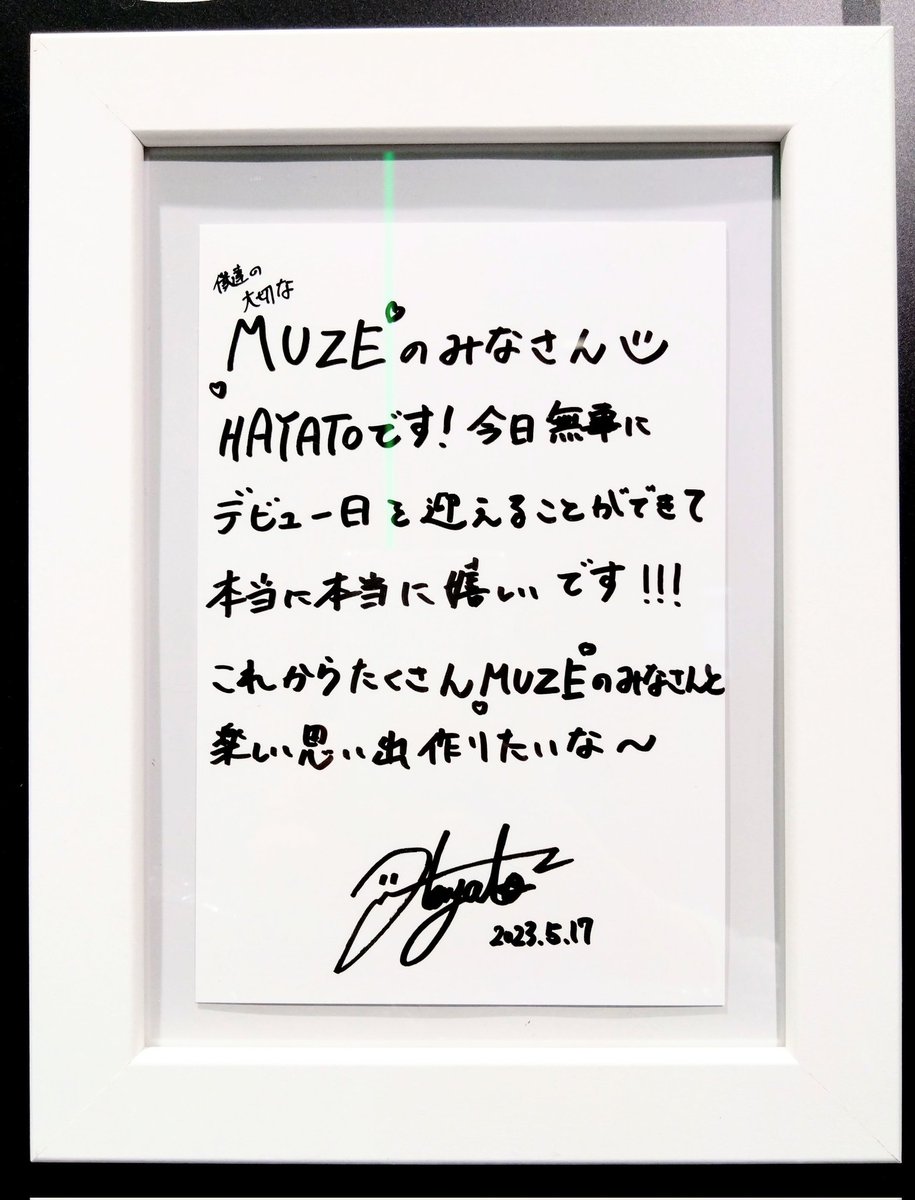 僕達の
大切な
MUZEのみなさん
HAYATOです！今日無事に
デビュー日を迎えることができて
本当に本当に嬉しいです!!!
これからたくさんMUZEのみなさんと
楽しい思い出作りたいな〜
Hayato
2023.5.17